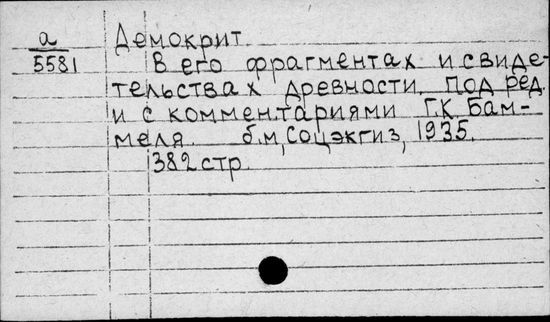 а Демокрит
5581 В его фрагментах и свиде-
тельствах древности. Под ред.
и с комментариями Г.К. Бам-
меля. б.м, Соцэкгиз, 1935.
382 стр.